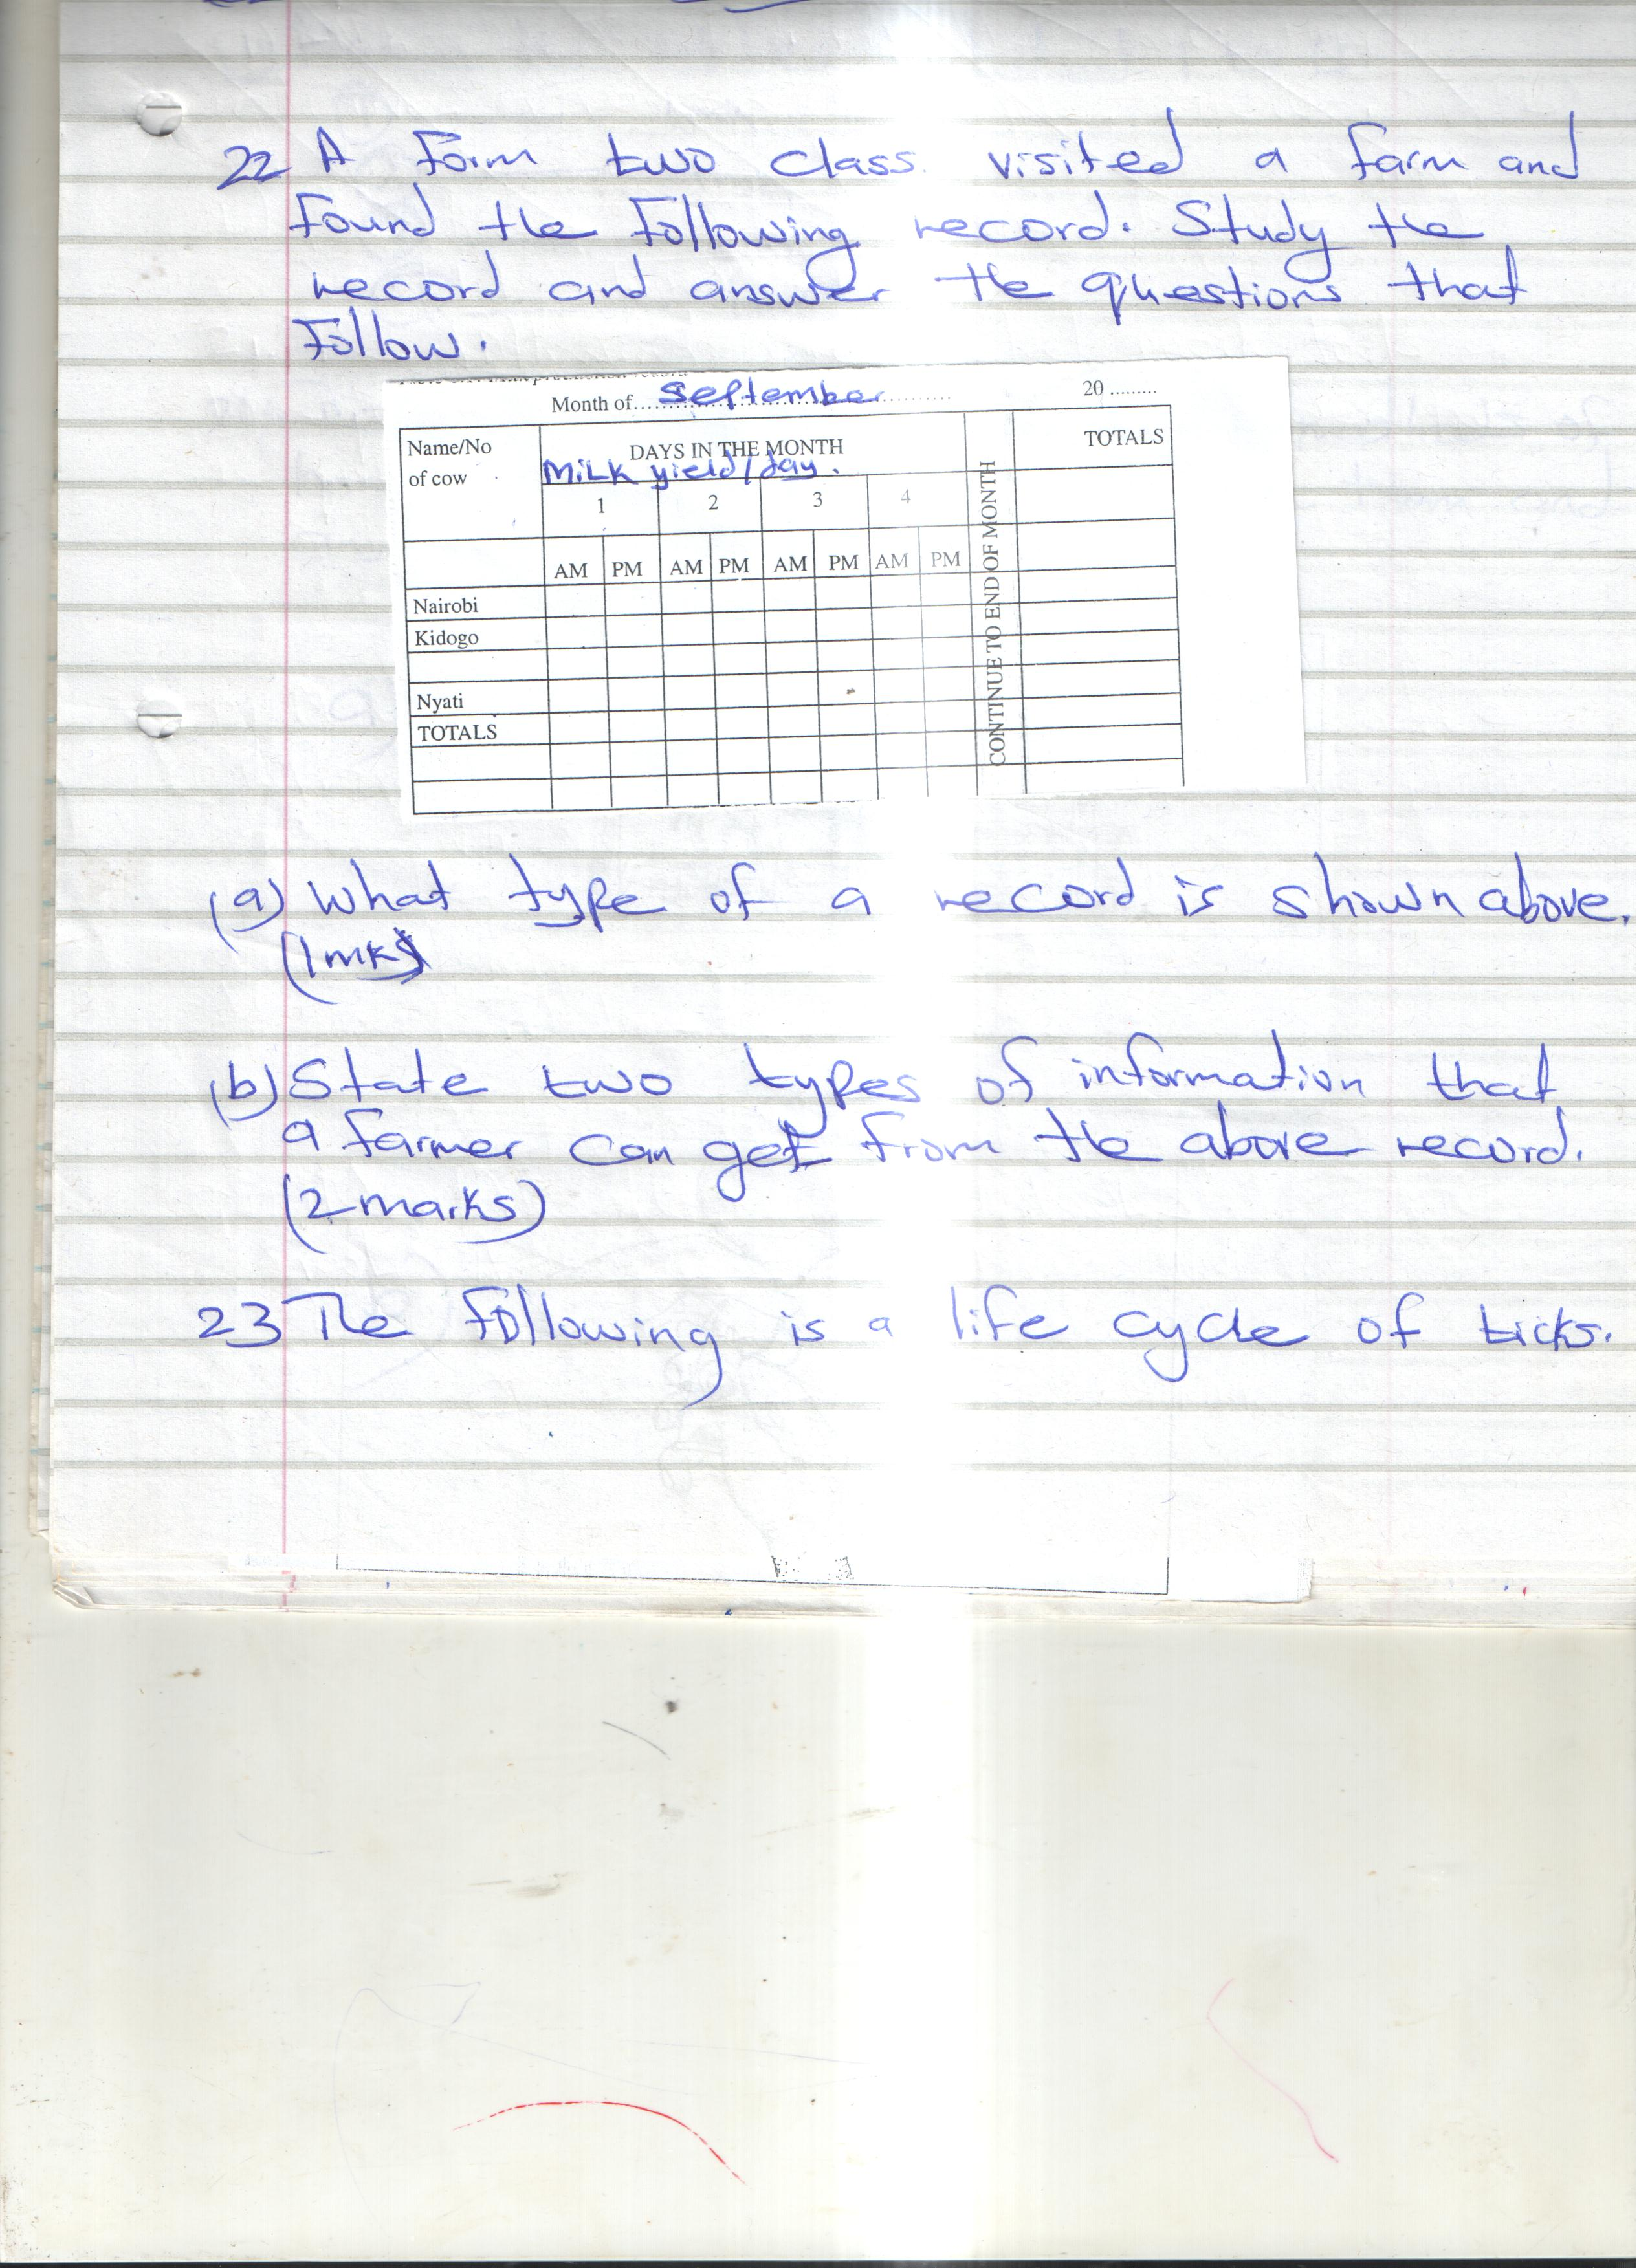 22 A Form two class visited a farm and
found the following record. Study the
record and answer the questions that
follow.
Month of September 20
Name/No
of cow
DAYS IN THE MONTH
TOTALS
Milk yield/day.
1 2 3 4
AM PM AM PM AM PM AM PM
CONTINUE TO END OF MONTH
Nairobi
Kidogo
Nyati
TOTALS
(a) What type of a record is shown above.
(1mk)
(b) State two types of information that
a farmer can get from the above record.
(2 marks)
23 The following is a life cycle of ticks.